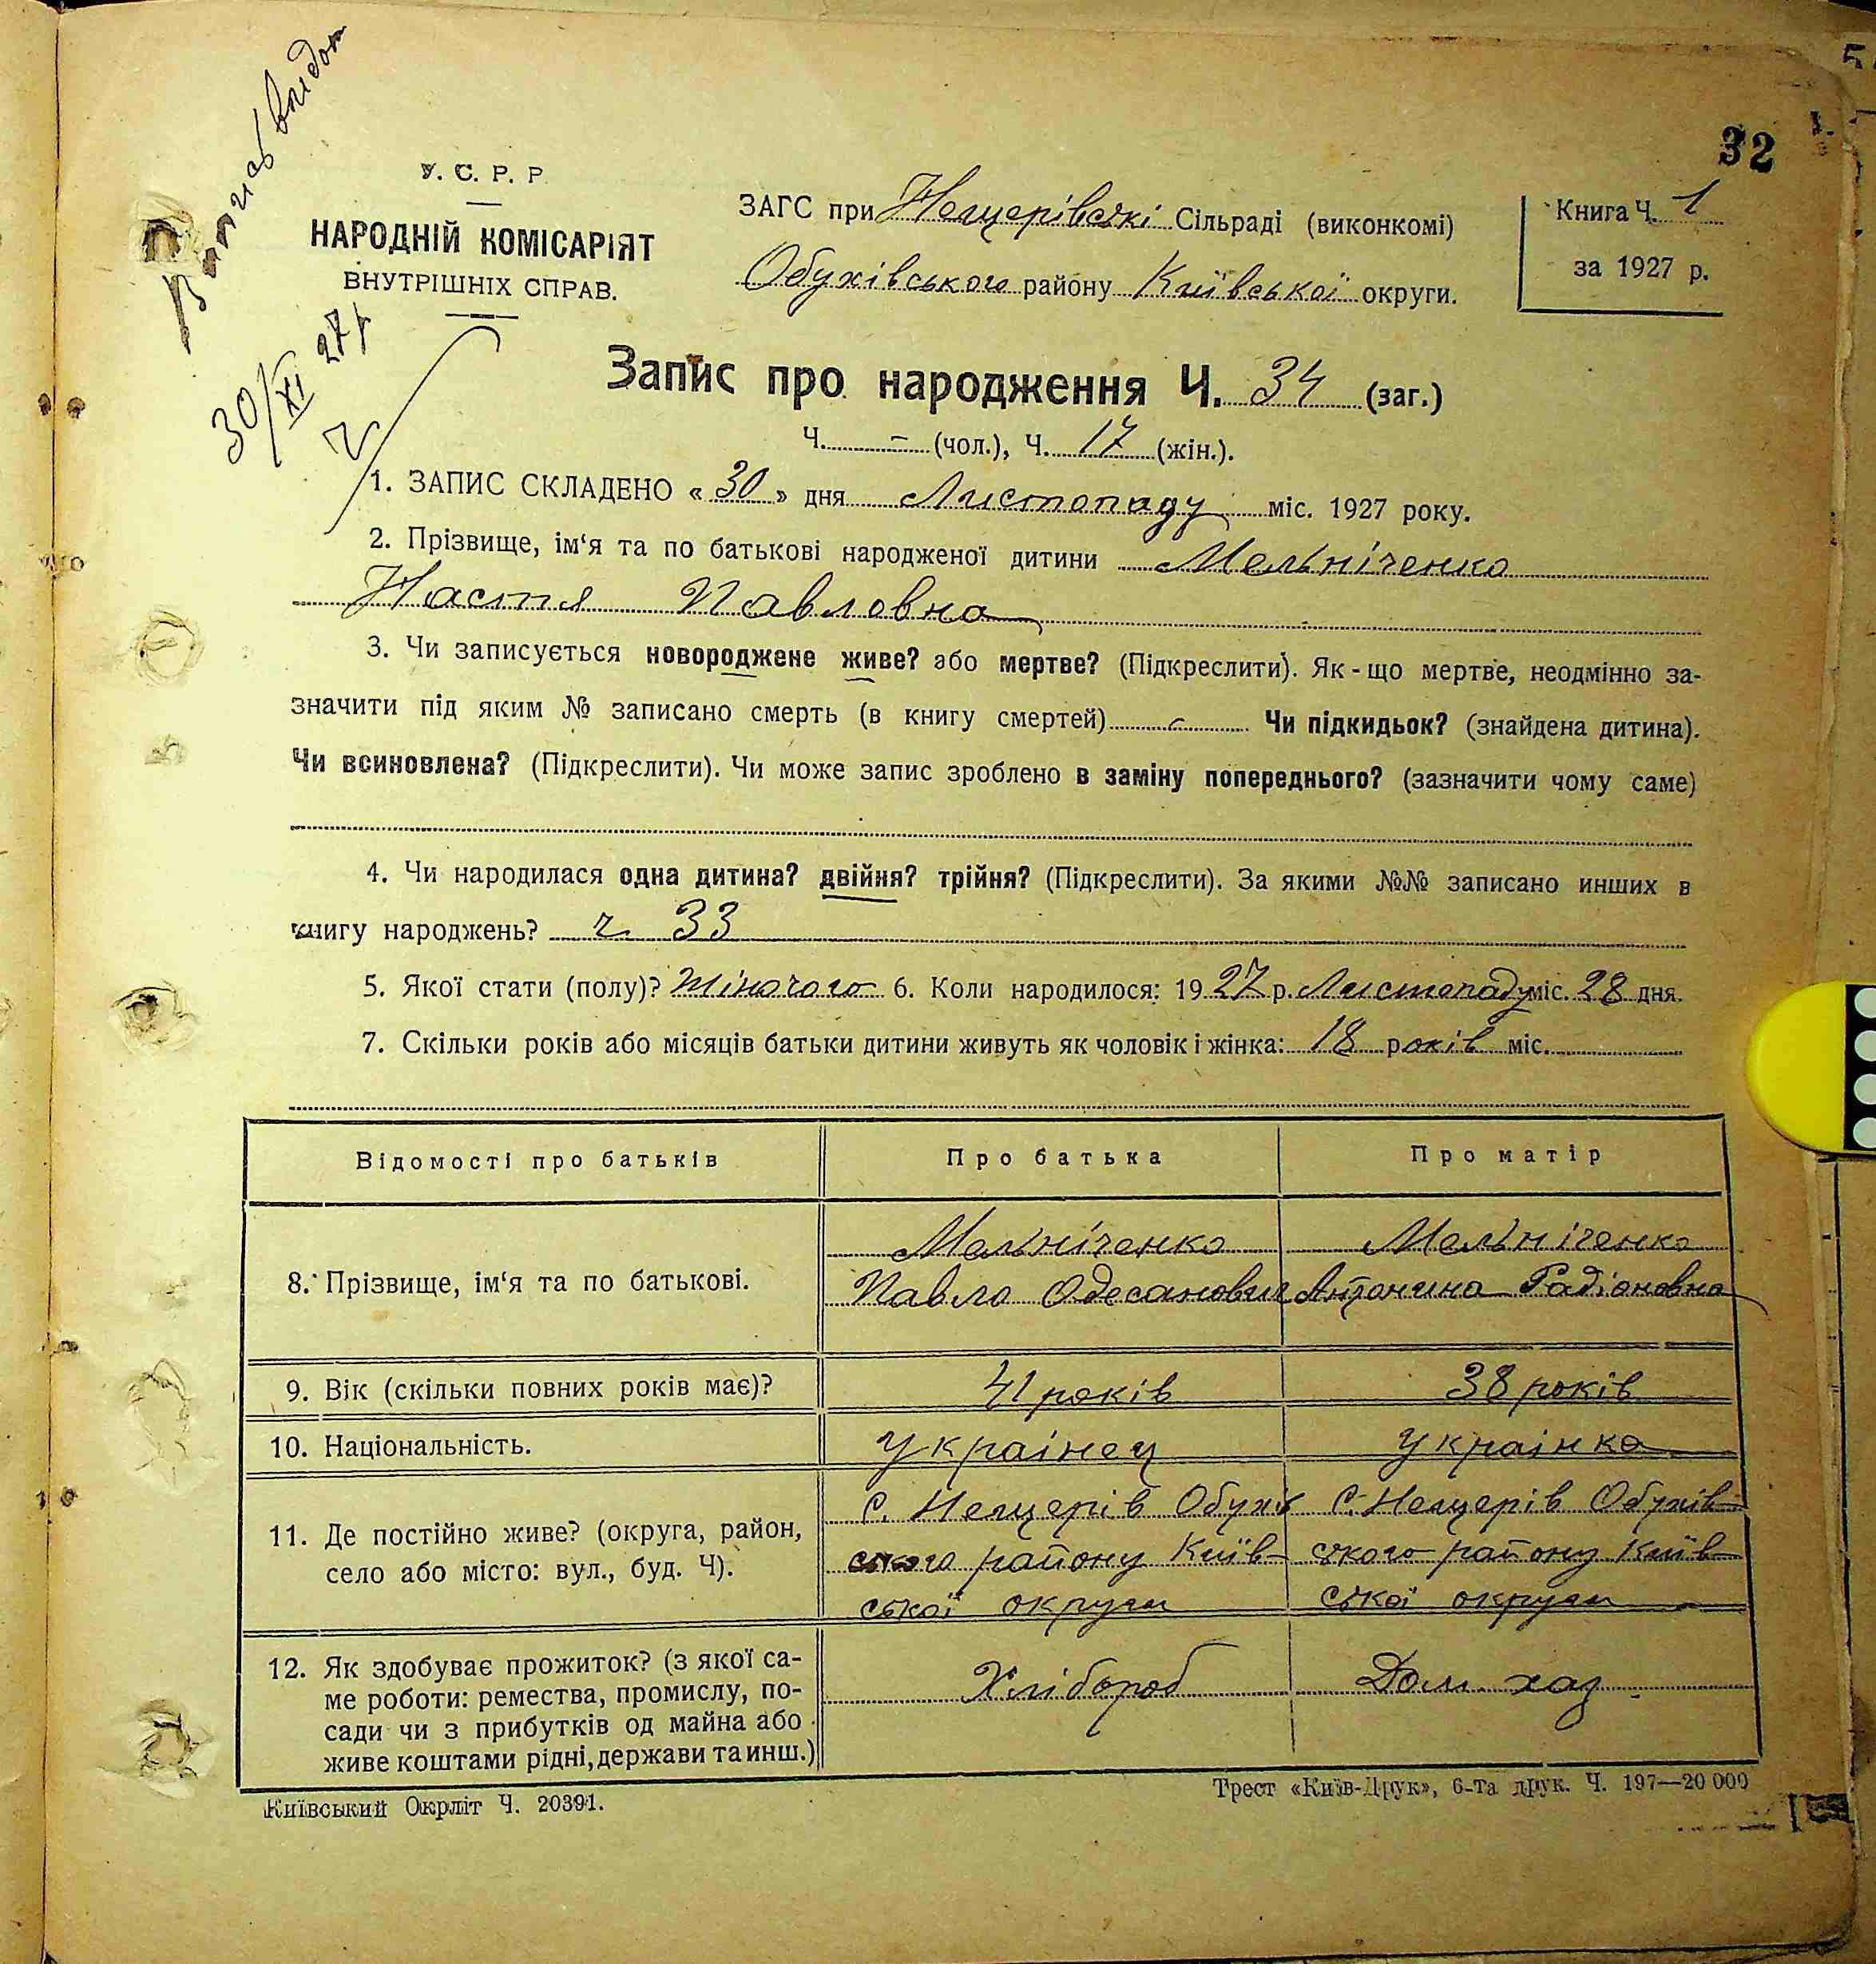 32
У. С. Р. Р
НАРОДНІЙ КОМІСАРІЯТ
ВНУТРІШНІХ СПРАВ.
30/XI 27р
ЗАГС при Нещерівські Сільраді (виконкомі)
Обухівського району Київської округи.
Книга Ч. 1
за 1927 р.
Запис про народження Ч. 34 (заг.)
Ч. – (чол.), Ч. 17 (жін.).
1. ЗАПИС СКЛАДЕНО « 30 » дня Листопаду міс. 1927 року.
2. Прізвище, ім‘я та по батькові народженої дитини Мельніченко
Настя Павловна
3. Чи записується новороджене живе? або мертве? (Підкреслити). Як-що мертве, неодмінно за-
значити під яким № записано смерть (в книгу смертей) – Чи підкидьок? (знайдена дитина).
Чи всиновлена? (Підкреслити). Чи може запис зроблено в заміну попереднього? (зазначити чому саме)
4. Чи народилася одна дитина? двійня? трійня? (Підкреслити). За якими №№ записано инших в
книгу народжень? ч. 33
5. Якої стати (полу)? Жіночого 6. Коли народилося: 1927 р. Листопаду міс. 28 дня.
7. Скільки років або місяців батьки дитини живуть як чоловік і жінка: 18 років міс.
Відомості про батьків Про батька Про матір
8. Прізвище, ім‘я та по батькові.
Мельніченко
Павло Одесанович
Мельніченко
Антонина Радіоновна
9. Вік (скільки повних років має)? 41 років 38 років
10. Національність. Українец Українка
11. Де постійно живе? (округа, район,
село або місто: вул., буд. Ч).
С. Нещерів Обухів
ського району Київ-
ської округи
С. Нещерів Обухів-
ського району Київ-
ської округи
12. Як здобуває прожиток? (з якої са-
ме роботи: ремества, промислу, по-
сади чи з прибутків од майна або
живе коштами рідні, держави та инш.)
Хлібороб
Дом. хаз.
Київський Окрліт Ч. 20391.
Трест «Київ-Друк», 6-та друк. Ч. 197—20 000